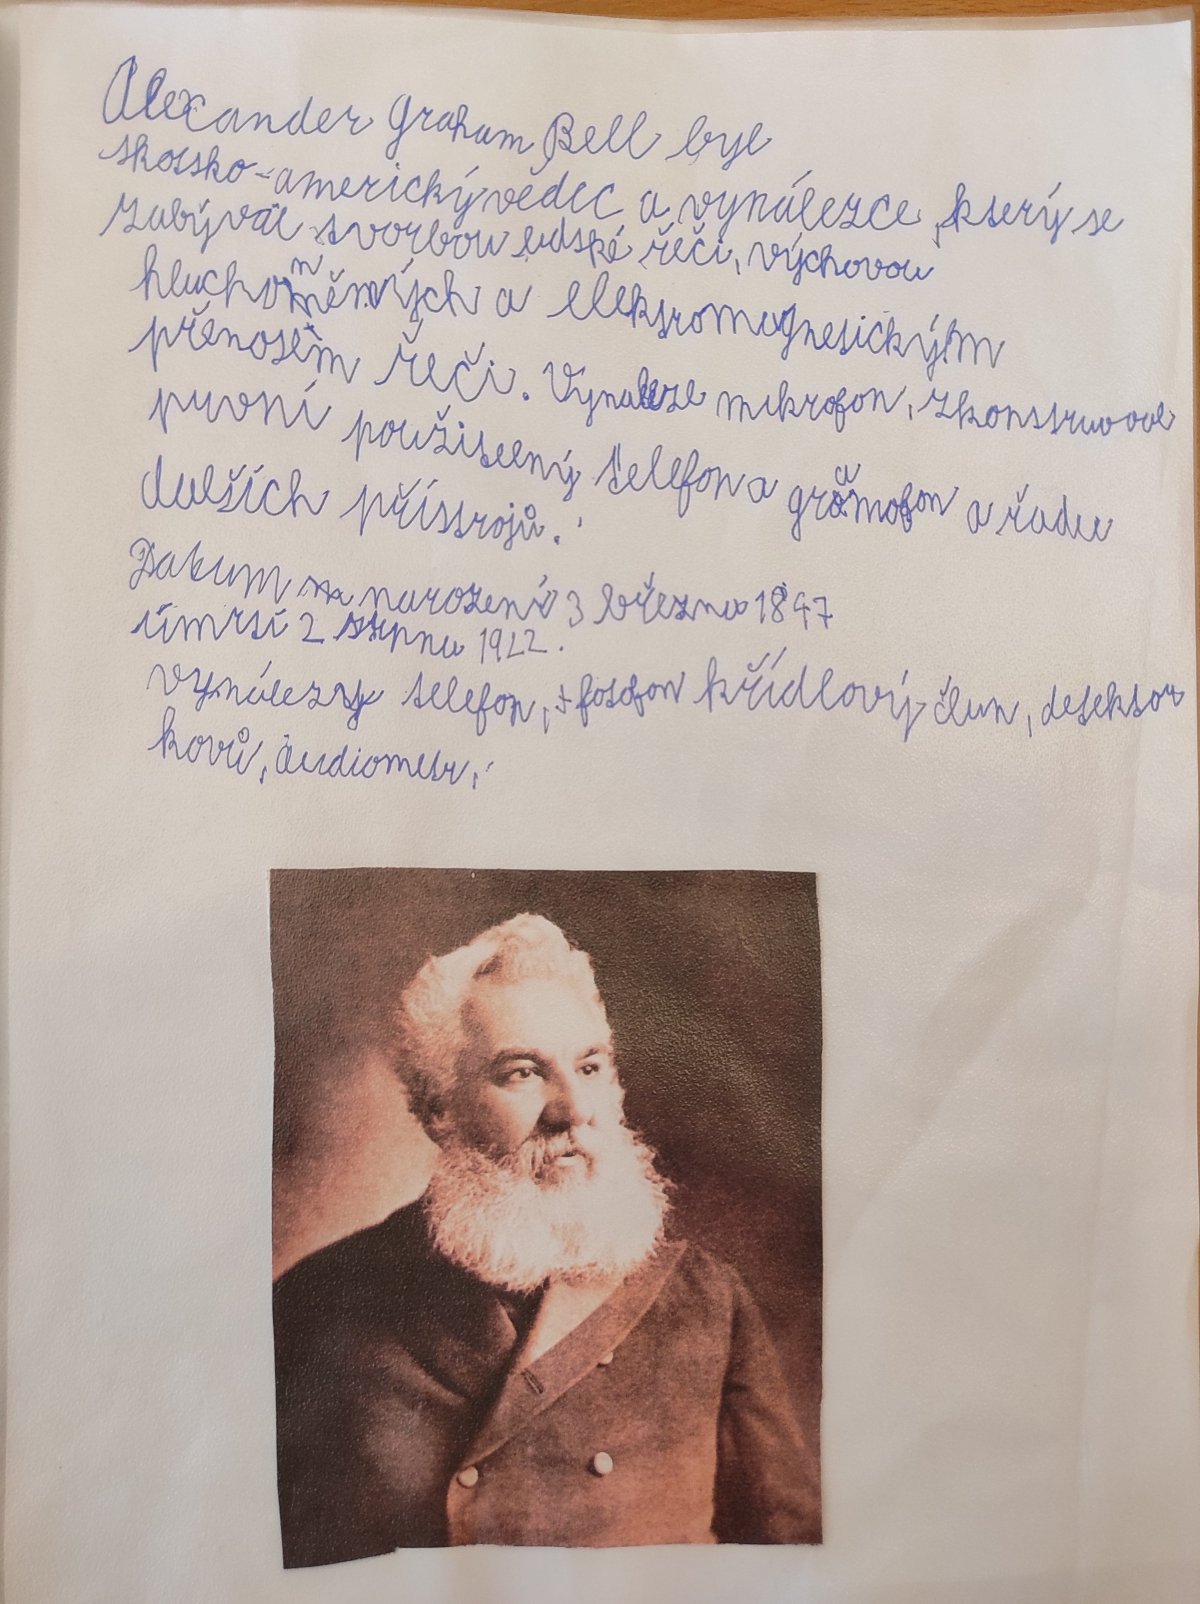 Alexander Graham Bell byl
skotsko-americký vědec a vynálezce, který se
zabýval tvorbou lidské řeči, výchovou
hluchoněmých a elektromagnetickým
přenosem řeči. Vynaleze mikrofon, zkonstruoval
první použitelný telefon a gramofon a řadu
dalších přístrojů.
Datum narození 3 března 1847
úmrtí 2 srpna 1922.
vynálezy telefon, fotofon křídlový člun, detektor
kovů, audiometr,